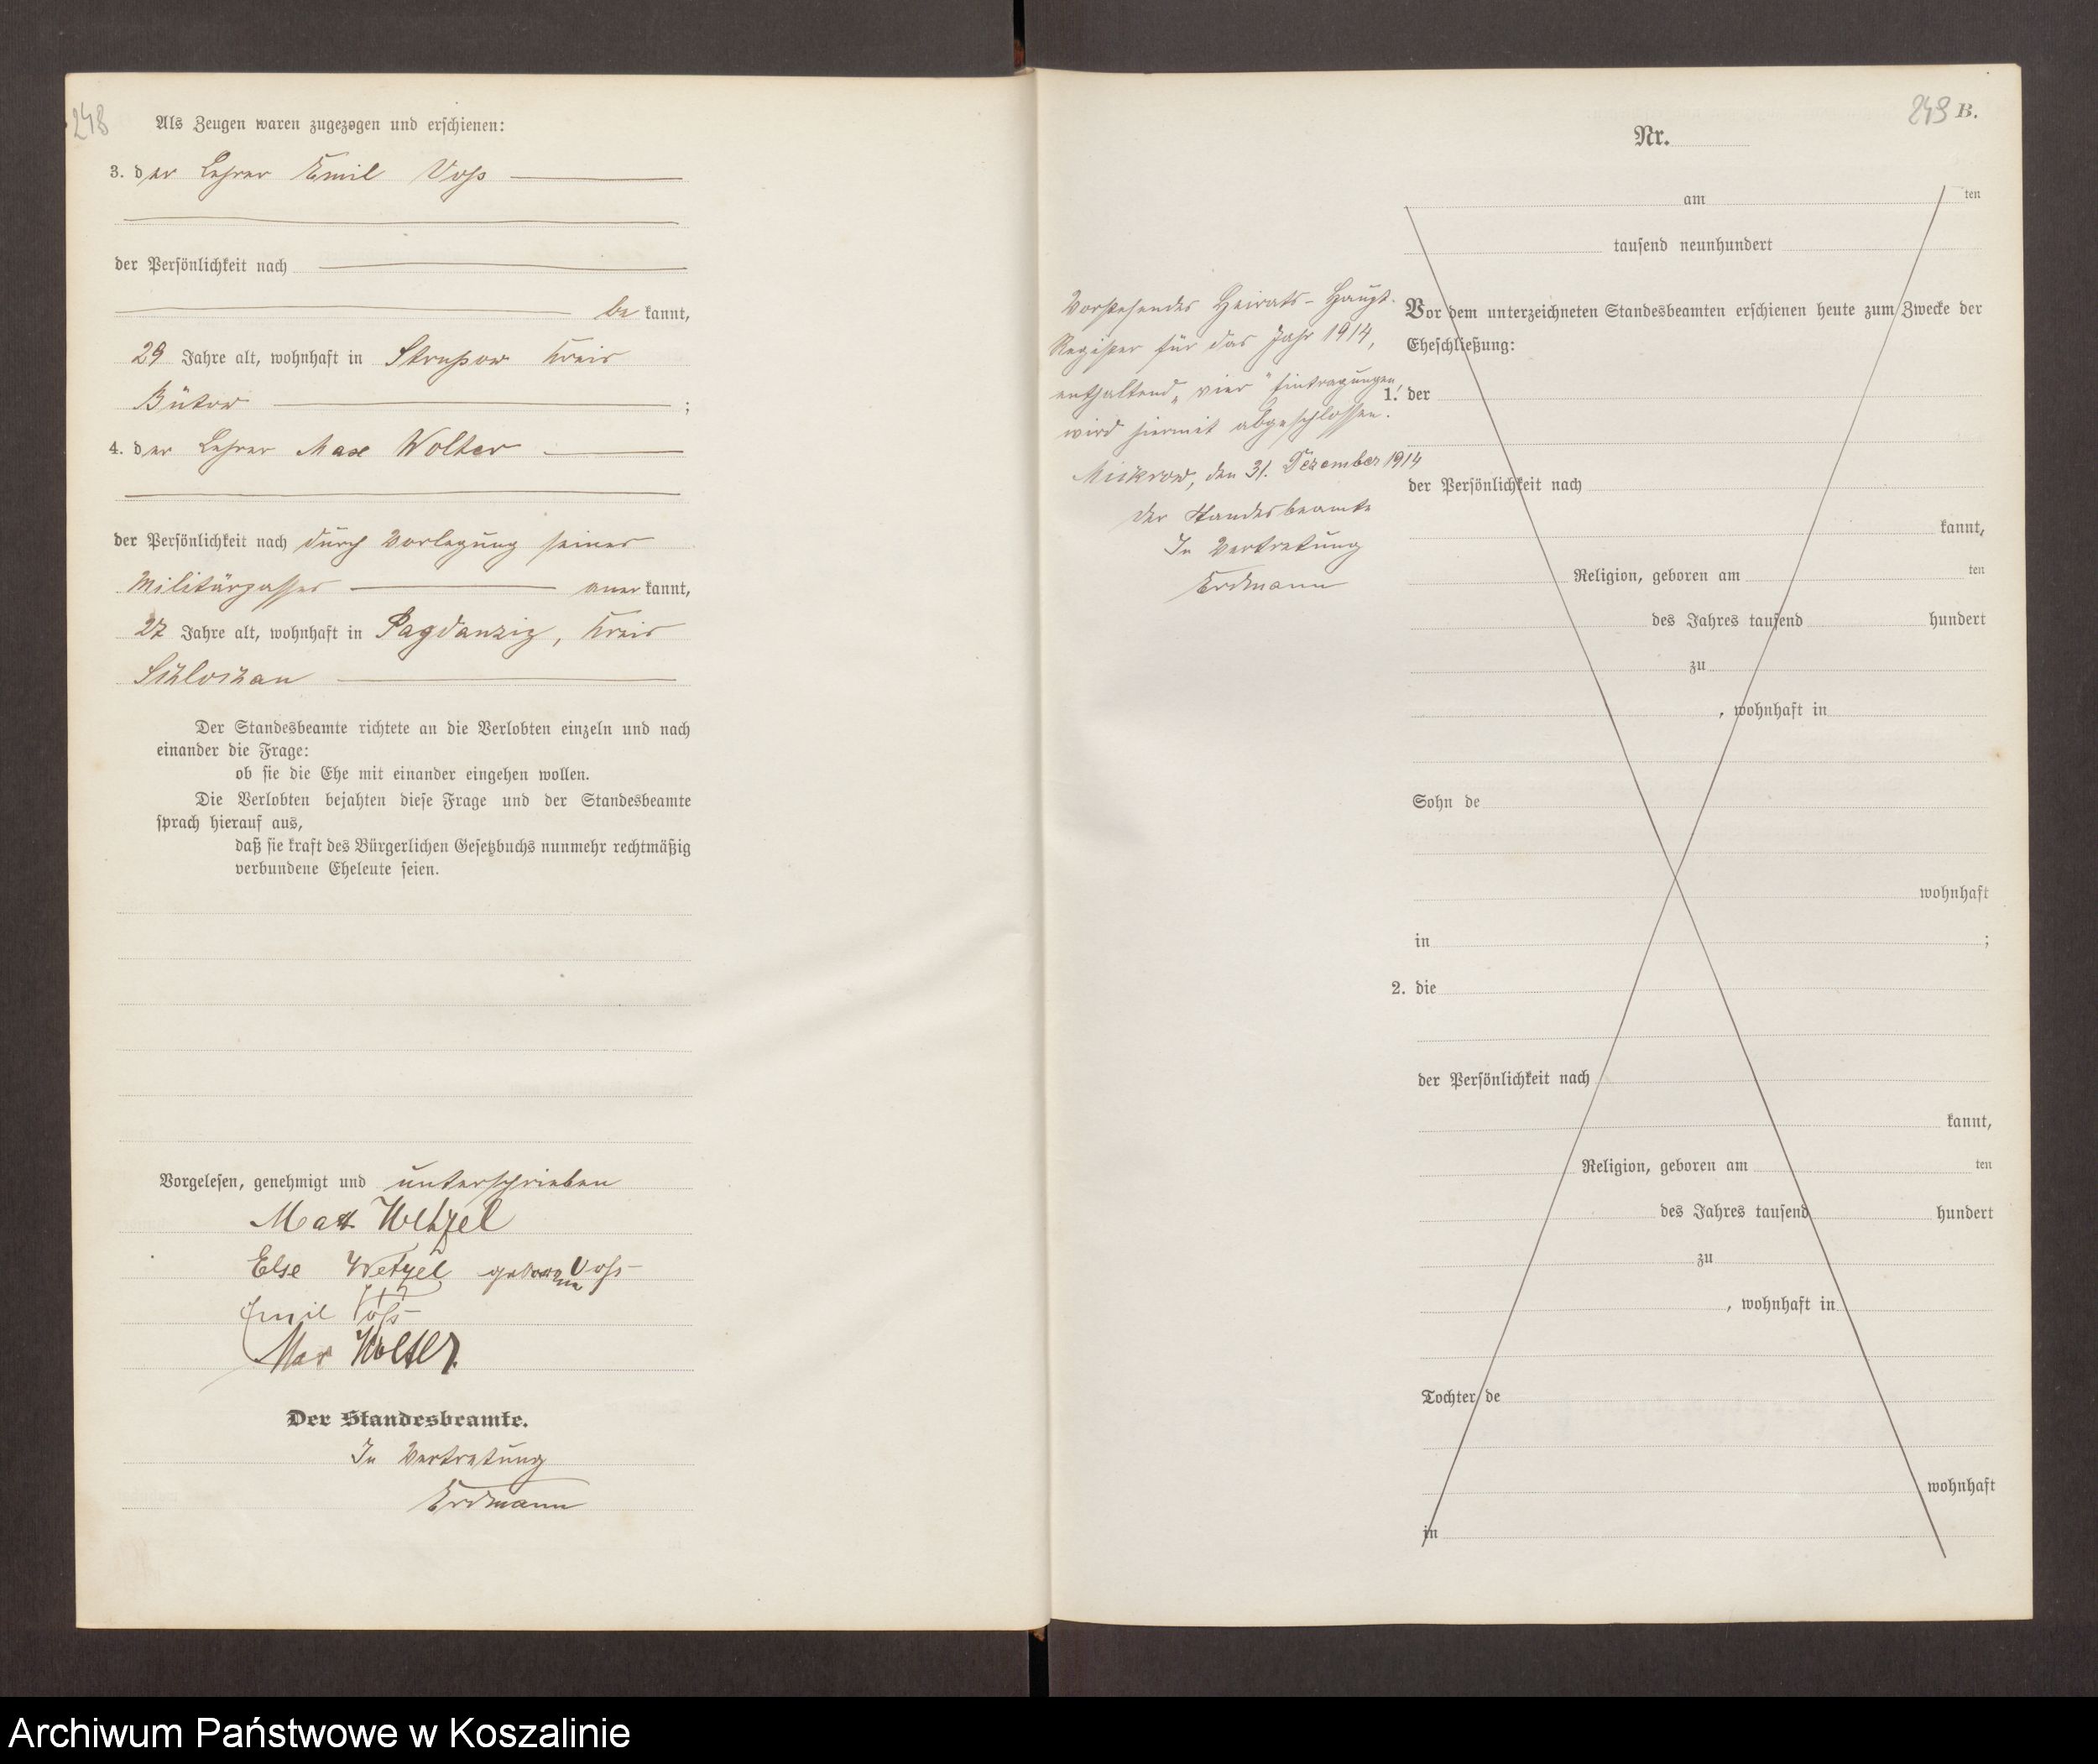 248
Als Zeugen waren zugezogen und erschienen:
3. der Lehrer Emil Voß
der Persönlichkeit nach
be kannt,
29 Jahre alt, wohnhaft in Strussow Kreis
Bütow ;
4. der Lehrer Max Wolter
der Persönlichkeit nach durch Vorlegung seines
Militärpasses aner kannt,
27 Jahre alt, wohnhaft in Pagdanzig, Kreis
Schlochau
Der Standesbeamte richtete an die Verlobten einzeln und nach
einander die Frage:
ob sie die Ehe mit einander eingehen wollen.
Die Verlobten bejahten diese Frage und der Standesbeamte
sprach hierauf aus,
daß sie kraft des Bürgerlichen Gesetzbuchs nunmehr rechtmäßig
verbundene Eheleute seien.
Vorgelesen, genehmigt und unterschrieben
Max Wetzel
Else Wetzel geborene Voß
Emil Voß
Max Wolter
Der Standesbeamte.
In Vertretung
Erdmann
249 B.
Nr.
am ten
tausend neunhundert
Vorstehendes Heirats-Haupt-
Register für das Jahr 1914,
enthaltend „vier" Eintragungen,
wird hiermit abgeschlossen.
Mickrow, den 31. Dezember 1914
Der Standesbeamte
In Vertretung
Erdmann
Vor dem unterzeichneten Standesbeamten erschienen heute zum Zwecke der
Eheschließung:
1. der
der Persönlichkeit nach
kannt,
Religion, geboren am ten
des Jahres tausend hundert
zu
, wohnhaft in
Sohn de
wohnhaft
in ;
2. die
der Persönlichkeit nach
kannt,
Religion, geboren am ten
des Jahres tausend hundert
zu
, wohnhaft in
Tochter de
wohnhaft
in
Archiwum Państwowe w Koszalinie